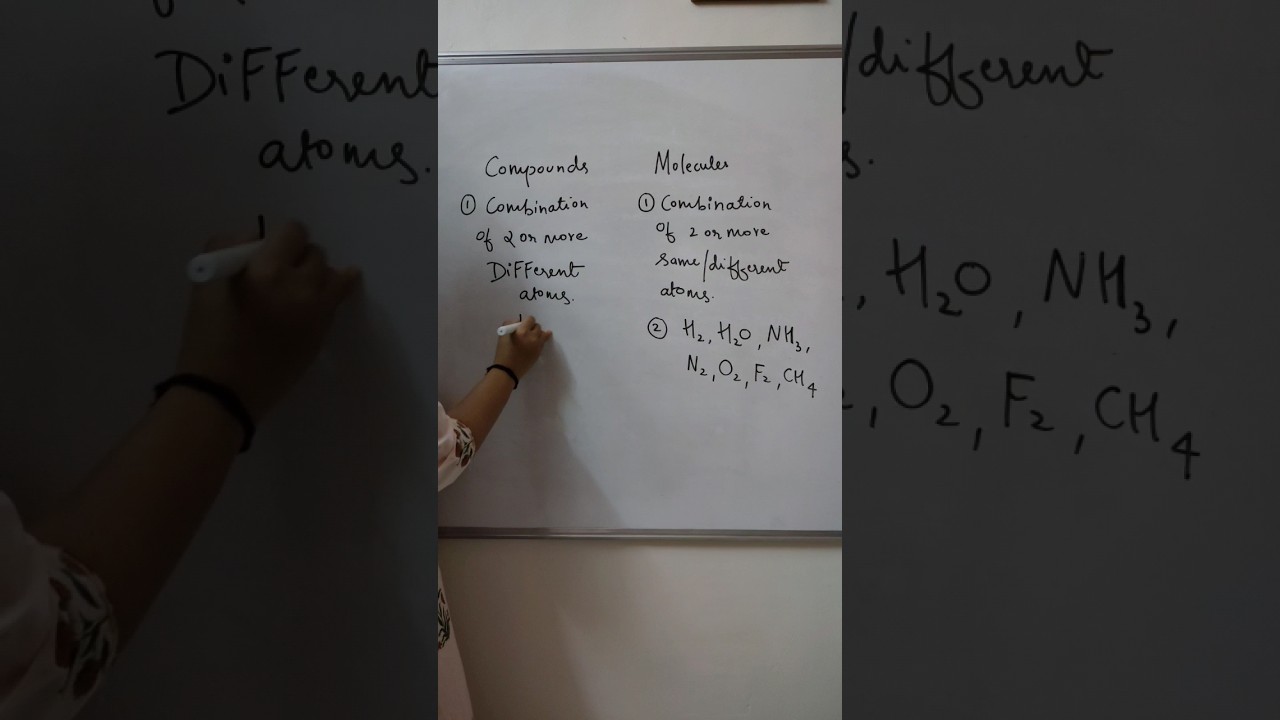 Compounds
① Combination
of 2 or more
DiFFerent
atoms.
Molecules
① Combination
of 2 or more
same/different
atoms.
② H₂, H₂O, NH₃,
N₂, O₂, F₂, CH₄